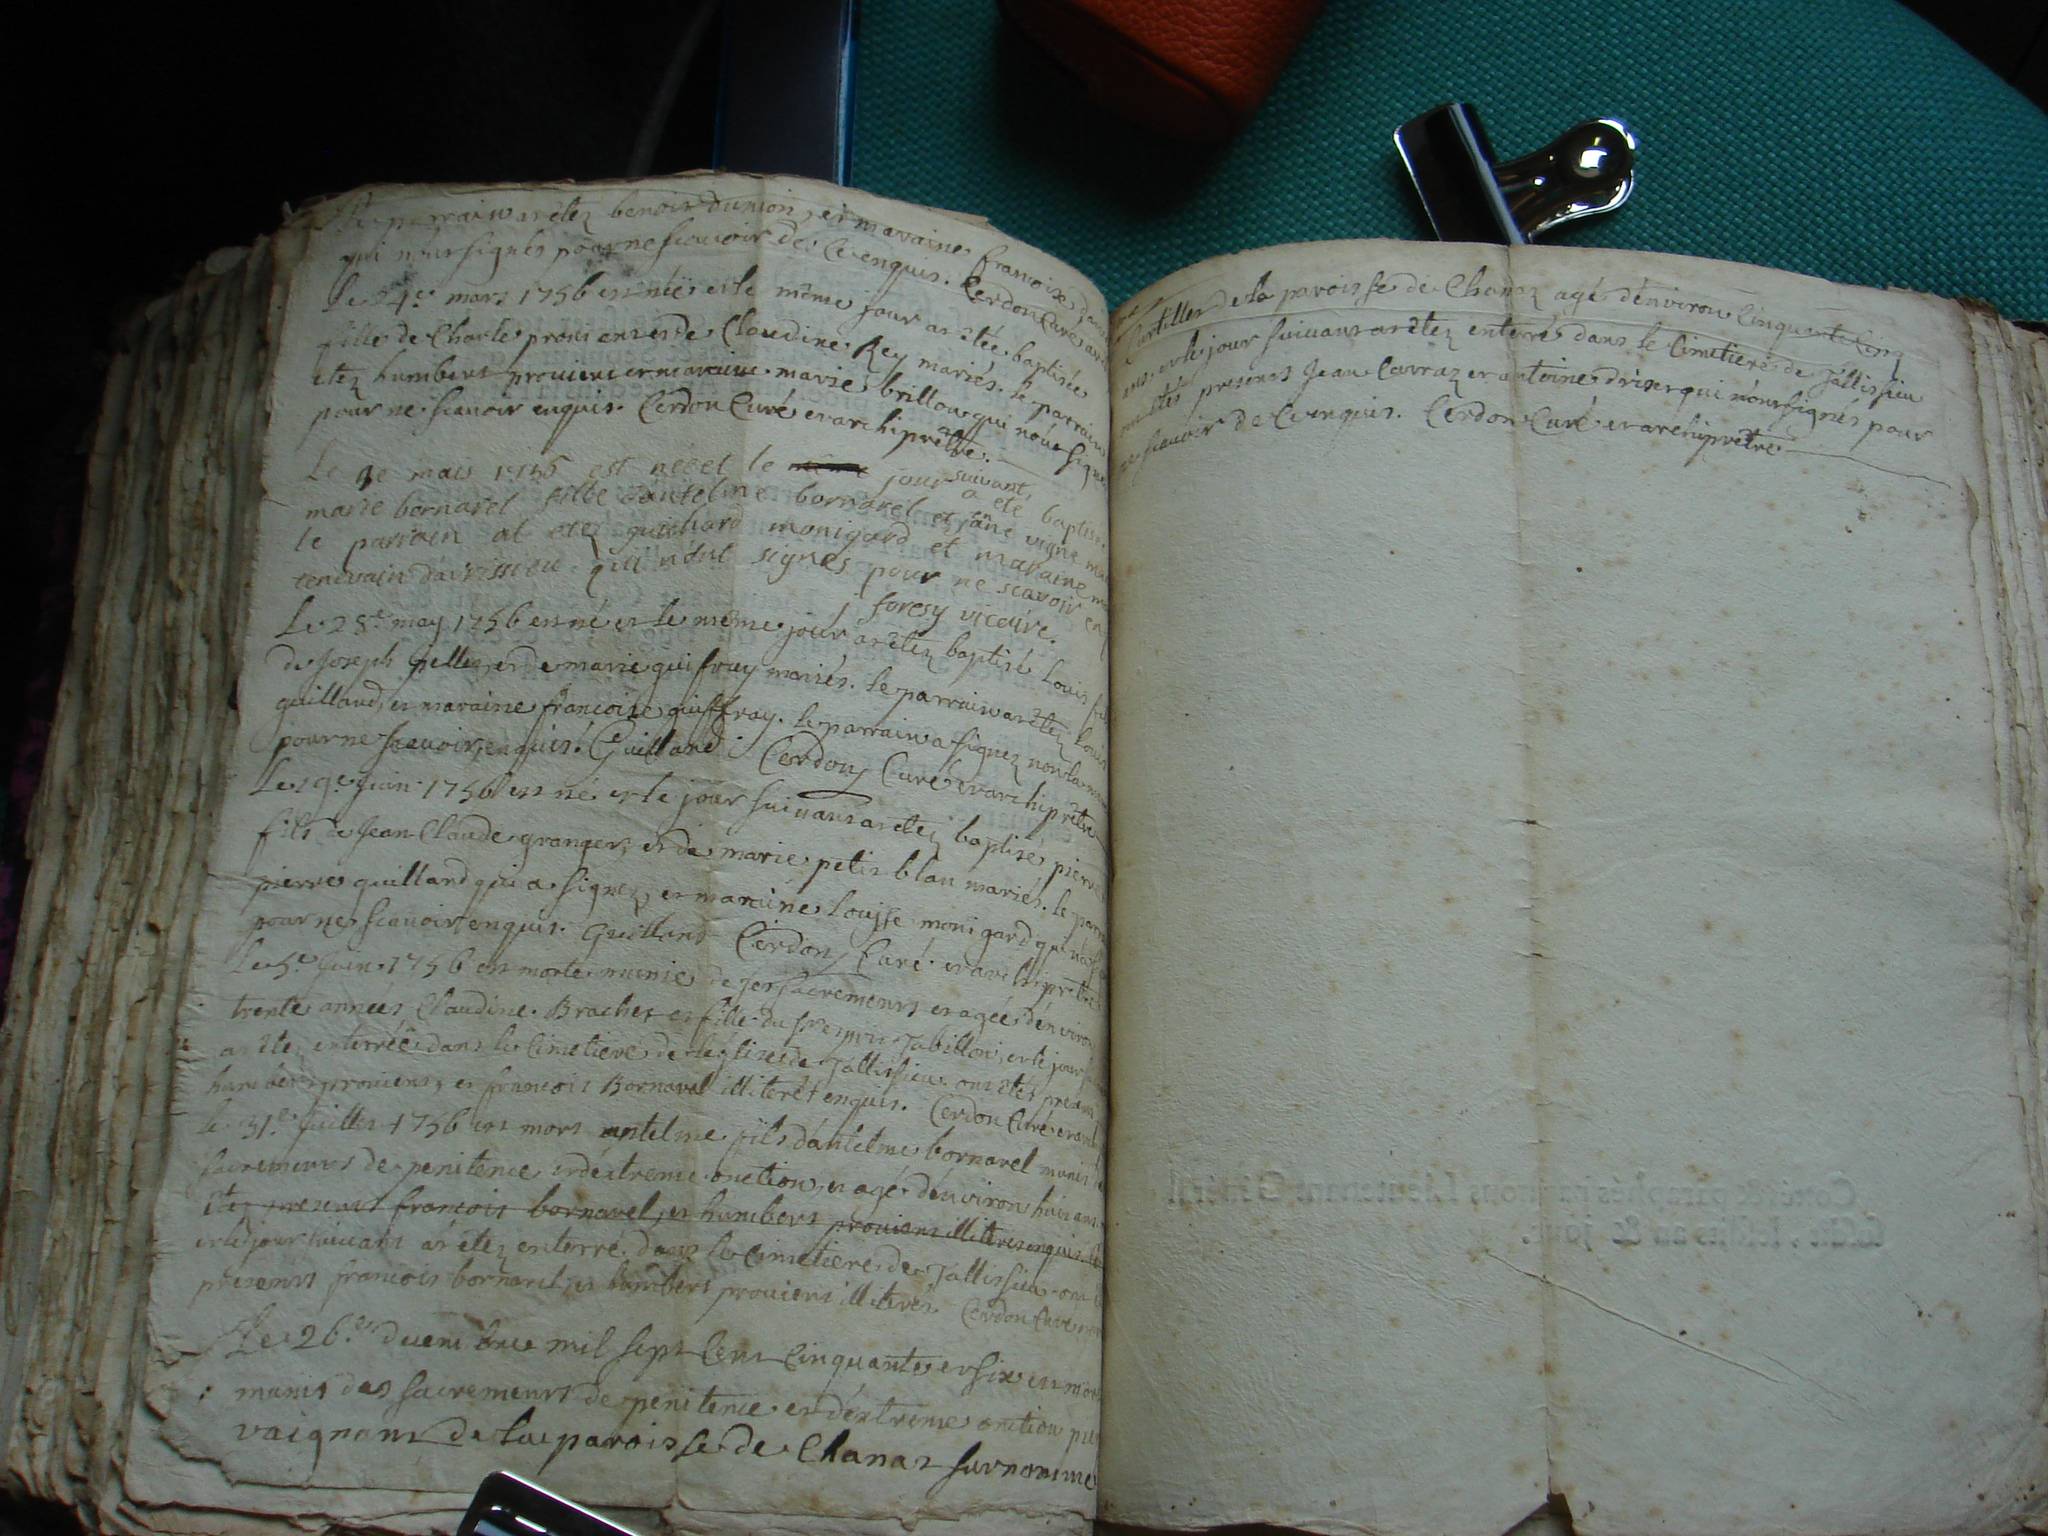 le parrain at étez benoit Dunion, et maraine francoise
qui n'ont signés pour ne scavoir de ce enquis. Cerdon Curé
Le 24.e mars 1756 est née et le même jour at étée baptisée
fille de Charle prouient et de Claudine Rey mariés. le parrain
étez humbert prouient et maraine marie brillon qui n'ont signés
pour ne scavoir enquis. Cerdon Curé et archiprêtre.
Le 9e mais 1756 est neé et le jour suivant a eté baptisé
marie bornarel fille d'antelme bornarel et jane vigne
le parrain at etez guichard monigard et maraine
d'avrissieu qui n'ont signes pour ne scavoir
j foresy vicaire.
Le 28.e may 1756 est né et le même jour at étez baptisé Louis fils
de Joseph pellez et de marie guifray mariés. le parrain at étez Louis
guilland, et maraine francoise guiffray. le parrain a signez non la
pour ne scavoir enquis. Guilland Cerdon Curé et archiprêtre
Le 19.e Juin 1756 est né et le jour suivant at étez baptisé pierre
fils de Jean Claude granger, et de marie petit blan mariés. le
pierre guilland qui a signez, et maraine Louise monigard qui
pour ne scavoir enquis. Guilland Cerdon Curé et archiprêtre
Le 5.e Juin 1756 est morte munie de ses sacrements et agée d'environ
trente années Claudine Brachet fille du Tabillon, et le jour
at étez enterrée dans le Cimetiere de l'églize de Tallissieu. ont étés présents
humbert prouient, et francois Bornarel illiterés enquis. Cerdon Curé
le 31.e Juillet 1756 est mort antelme fils d'antelme bornarel munis
sacrements de penitence et d'extreme onction, et agé d'environ huit ans
étez presents francois bornarel, et humbert prouient illiterés enquis.
et le jour suivant at étez enterré dans le Cimetiere de Tallissieu ont
présents francois bornarel, et humbert prouient illiterés Cerdon Curé
Le 26.e decembre mil sept Cent Cinquante et six est mort
munis des sacrements de penitence et d'éxtreme onction
vaignant de la paroisse de Chanas surnommé
Curtiller de la paroisse de Chanaz agé d'environ Cinquante Cinq
ans, et le jour suivant at étez enterré dans le Cimetiere de Tallissieu
ont étés présents Jean Carraz et antoine qui n'ont signés pour
ne scavoir de Ce enquis. Cerdon Curé et archiprêtre